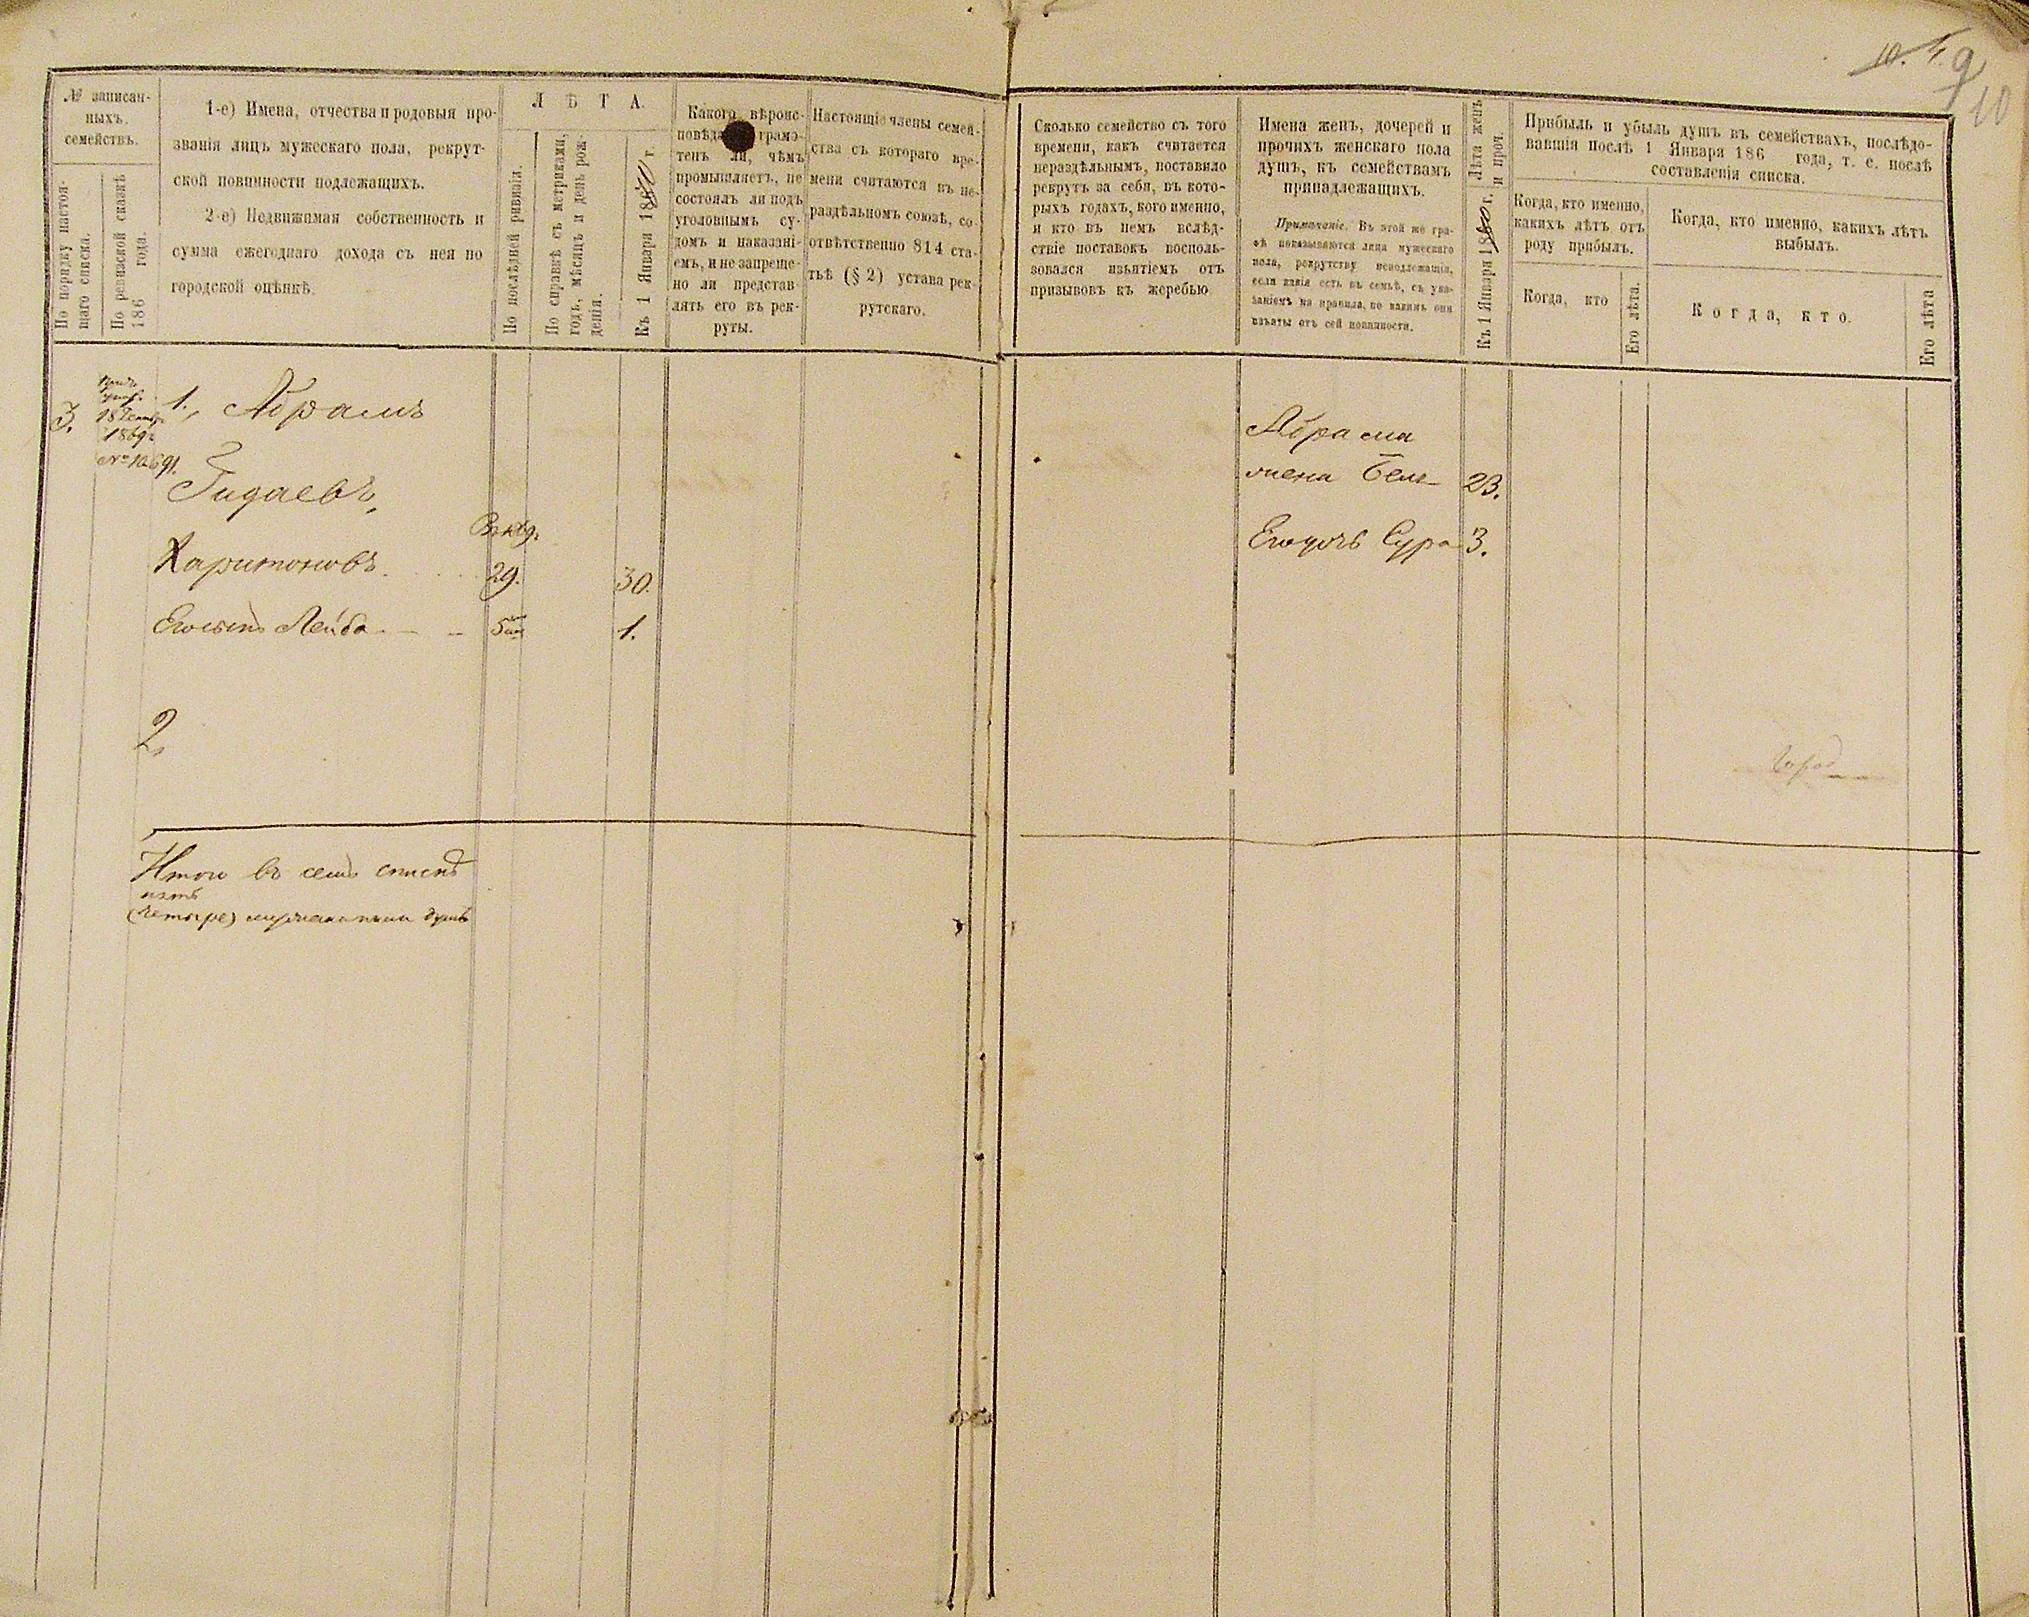 9
10
№ записан-
ныхъ
семействъ.
По порядку настоя-
щаго списка.
По ревизской сказкѣ
186 года.
1-е) Имена, отчества и родовыя про-
званія лицъ мужескаго пола, рекрут-
ской повинности подлежащихъ.
2-е) Недвижимая собственность и
сумма ежегоднаго дохода съ нея по
городской оцѣнкѣ.
ЛѢТА.
По послѣдней ривизіи.
По справкѣ съ метриками,
годъ, мѣсяцъ и день рож-
денія.
Къ 1 Января 18 г.
Какого вѣроис-
повѣда грамо-
тенъ ли, чѣмъ
промышляетъ, не
состоялъ ли подъ
уголовнымъ су-
домъ и наказані-
емъ, и не запреще-
но ли представ-
лять его въ рек-
руты.
Настоящіе члены семей-
ства съ котораго вре-
мени считаются въ не-
раздѣльномъ союзѣ, со-
отвѣтственно 814 ста-
тьѣ (§ 2) устава рек-
рутскаго.
Сколько семейство съ того
времени, какъ считается
нераздѣльнымъ, поставило
рекрутъ за себя, въ кото-
рыхъ годахъ, кого именно,
и кто въ немъ вслѣд-
ствіе поставокъ восполь-
зовался изъятіемъ отъ
призывовъ къ жеребью.
Имена женъ, дочерей и
прочихъ женскаго пола
душъ, къ семействамъ
принадлежащихъ.
Примѣчаніе. Въ этой же гра-
фѣ показываются лица мужескаго
пола, рекрутству неподлежащія,
если какія есть въ семьѣ, съ ука-
заніемъ на правила, по какимъ они
изъяты отъ сей повинности.
Лѣта женъ
и проч.
Къ 1 Января 18 г.
Прибыль и убыль душъ въ семействахъ, послѣдо-
вавшія послѣ 1 Января 186 года, т. е. послѣ
составленія списка.
Когда, кто именно,
какихъ лѣтъ отъ
роду прибылъ.
Когда, кто
Его лѣта.
Когда, кто именно, какихъ лѣтъ
выбылъ.
Когда, кто.
Его лѣта
3.
1869г.
№ 10691.
1., Абрамъ
Гидаевъ,
Харитоновъ 29. 30.
Его сынъ Лейба 1.
2,
Абрама
жена Бел 23.
Его дочь Сура 3.
Итого въ семъ спискѣ
пять
(четыре) душъ